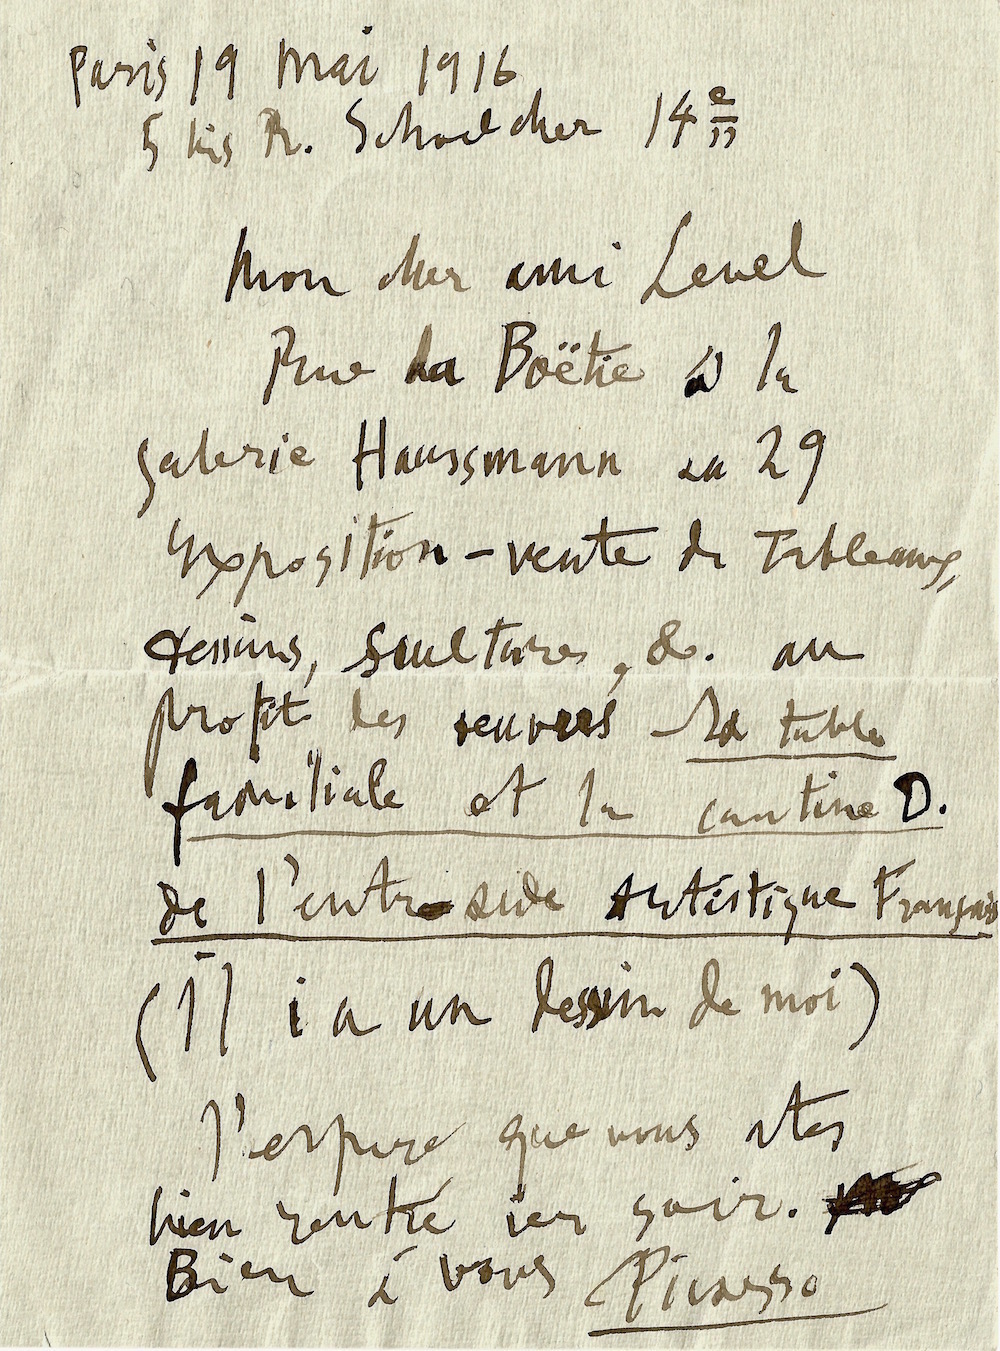 Paris 19 Mai 1916
5 bis R. Schoelcher 14e
Mon cher ami Level
Rue La Boëtie à la
galerie Haussmann au 29
exposition-vente de Tableaux,
dessins, scultures, &. au
profit des euvres La table
familiale et la cantine D.
de l'entr aide Artistique Français
(Il i a un dessin de moi)
J'espere que vous etes
bien rentré ier soir.
Bien à vous Picasso